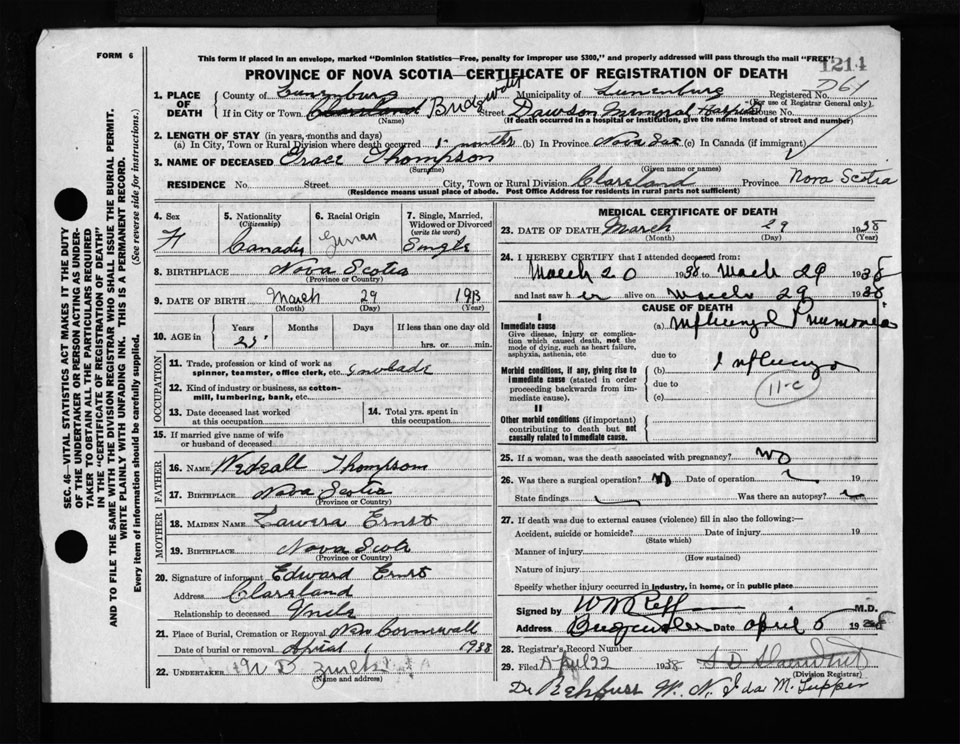 FORM 6
This form if placed in an envelope, marked "Dominion Statistics—Free, penalty for improper use $300," and properly addressed will pass through the mail "FREE"
1214
PROVINCE OF NOVA SCOTIA—CERTIFICATE OF REGISTRATION OF DEATH
1. PLACE OF DEATH
County of Lunenburg Municipality of Lunenburg Registered No. D61
(For use of Registrar General only)
If in City or Town Bridgwater Street Dawson Memorial Hospital House No.
(Name) (If death occurred in a hospital or institution, give the name instead of street and number)
2. LENGTH OF STAY (in years, months and days)
(a) In City, Town or Rural Division where death occurred months (b) In Province Nova Sco (c) In Canada (if immigrant)
3. NAME OF DECEASED Grace Thompson
(Surname) (Given name or names)
RESIDENCE No. Street City, Town or Rural Division Clarsland Province Nova Scotia
(Residence means usual place of abode. Post Office Address for residents in rural parts not sufficient)
4. Sex
F
5. Nationality
(Citizenship)
6. Racial Origin
German
7. Single, Married, Widowed or Divorced
(write the word)
Single
8. BIRTHPLACE Nova Scotia
(Province or Country)
9. DATE OF BIRTH March 29 1913
(Month) (Day) (Year)
10. AGE in
Years Months Days If less than one day old
25 hrs. or min.
OCCUPATION
11. Trade, profession or kind of work as spinner, teamster, office clerk, etc.
12. Kind of industry or business, as cotton-mill, lumbering, bank, etc.
13. Date deceased last worked at this occupation
14. Total yrs. spent in this occupation
15. If married give name of wife or husband of deceased
FATHER
16. NAME Thompson
17. BIRTHPLACE Nova Scotia
(Province or Country)
MOTHER
18. MAIDEN NAME Ernst
19. BIRTHPLACE Nova Scotia
(Province or Country)
20. Signature of informant Edward Ernst
Address Clarsland
Relationship to deceased Uncle
21. Place of Burial, Cremation or Removal New Cornwall
Date of burial or removal April 1 1938
22. UNDERTAKER
(Name and address)
MEDICAL CERTIFICATE OF DEATH
23. DATE OF DEATH March 29 1938
(Month) (Day) (Year)
24. I HEREBY CERTIFY that I attended deceased from:
March 20 1938 to March 29 1938
and last saw her alive on March 29 1938
CAUSE OF DEATH
I
Immediate cause
Give disease, injury or complication which caused death, not the mode of dying, such as heart failure, asphyxia, asthenia, etc
(a) Influenzal Pneumonia
due to
Morbid conditions, if any, giving rise to immediate cause (stated in order proceeding backwards from immediate cause).
(b) Influenza
due to
(c)
11-c
II
Other morbid conditions (if important) contributing to death but not causally related to immediate cause.
25. If a woman, was the death associated with pregnancy? No
26. Was there a surgical operation? No Date of operation 19
State findings Was there an autopsy?
27. If death was due to external causes (violence) fill in also the following:—
Accident, suicide or homicide? Date of injury 19
(State which)
Manner of injury
(How sustained)
Nature of injury
Specify whether injury occurred in industry, in home, or in public place
Signed by M.D.
Address Bridgewater Date April 5 1938
28. Registrar's Record Number
29. Filed April 22 1938
(Division Registrar)
Dr Rehfuss W. N. Ida M. Tupper
SEC. 46—VITAL STATISTICS ACT MAKES IT THE DUTY
OF THE UNDERTAKER OR PERSON ACTING AS UNDER-
TAKER TO OBTAIN ALL THE PARTICULARS REQUIRED
IN THE "CERTIFICATE OF REGISTRATION OF DEATH"
AND TO FILE THE SAME WITH THE DIVISION REGISTRAR WHO SHALL ISSUE THE BURIAL PERMIT.
WRITE PLAINLY WITH UNFADING INK. THIS IS A PERMANENT RECORD.
Every item of information should be carefully supplied. (See reverse side for instructions.)